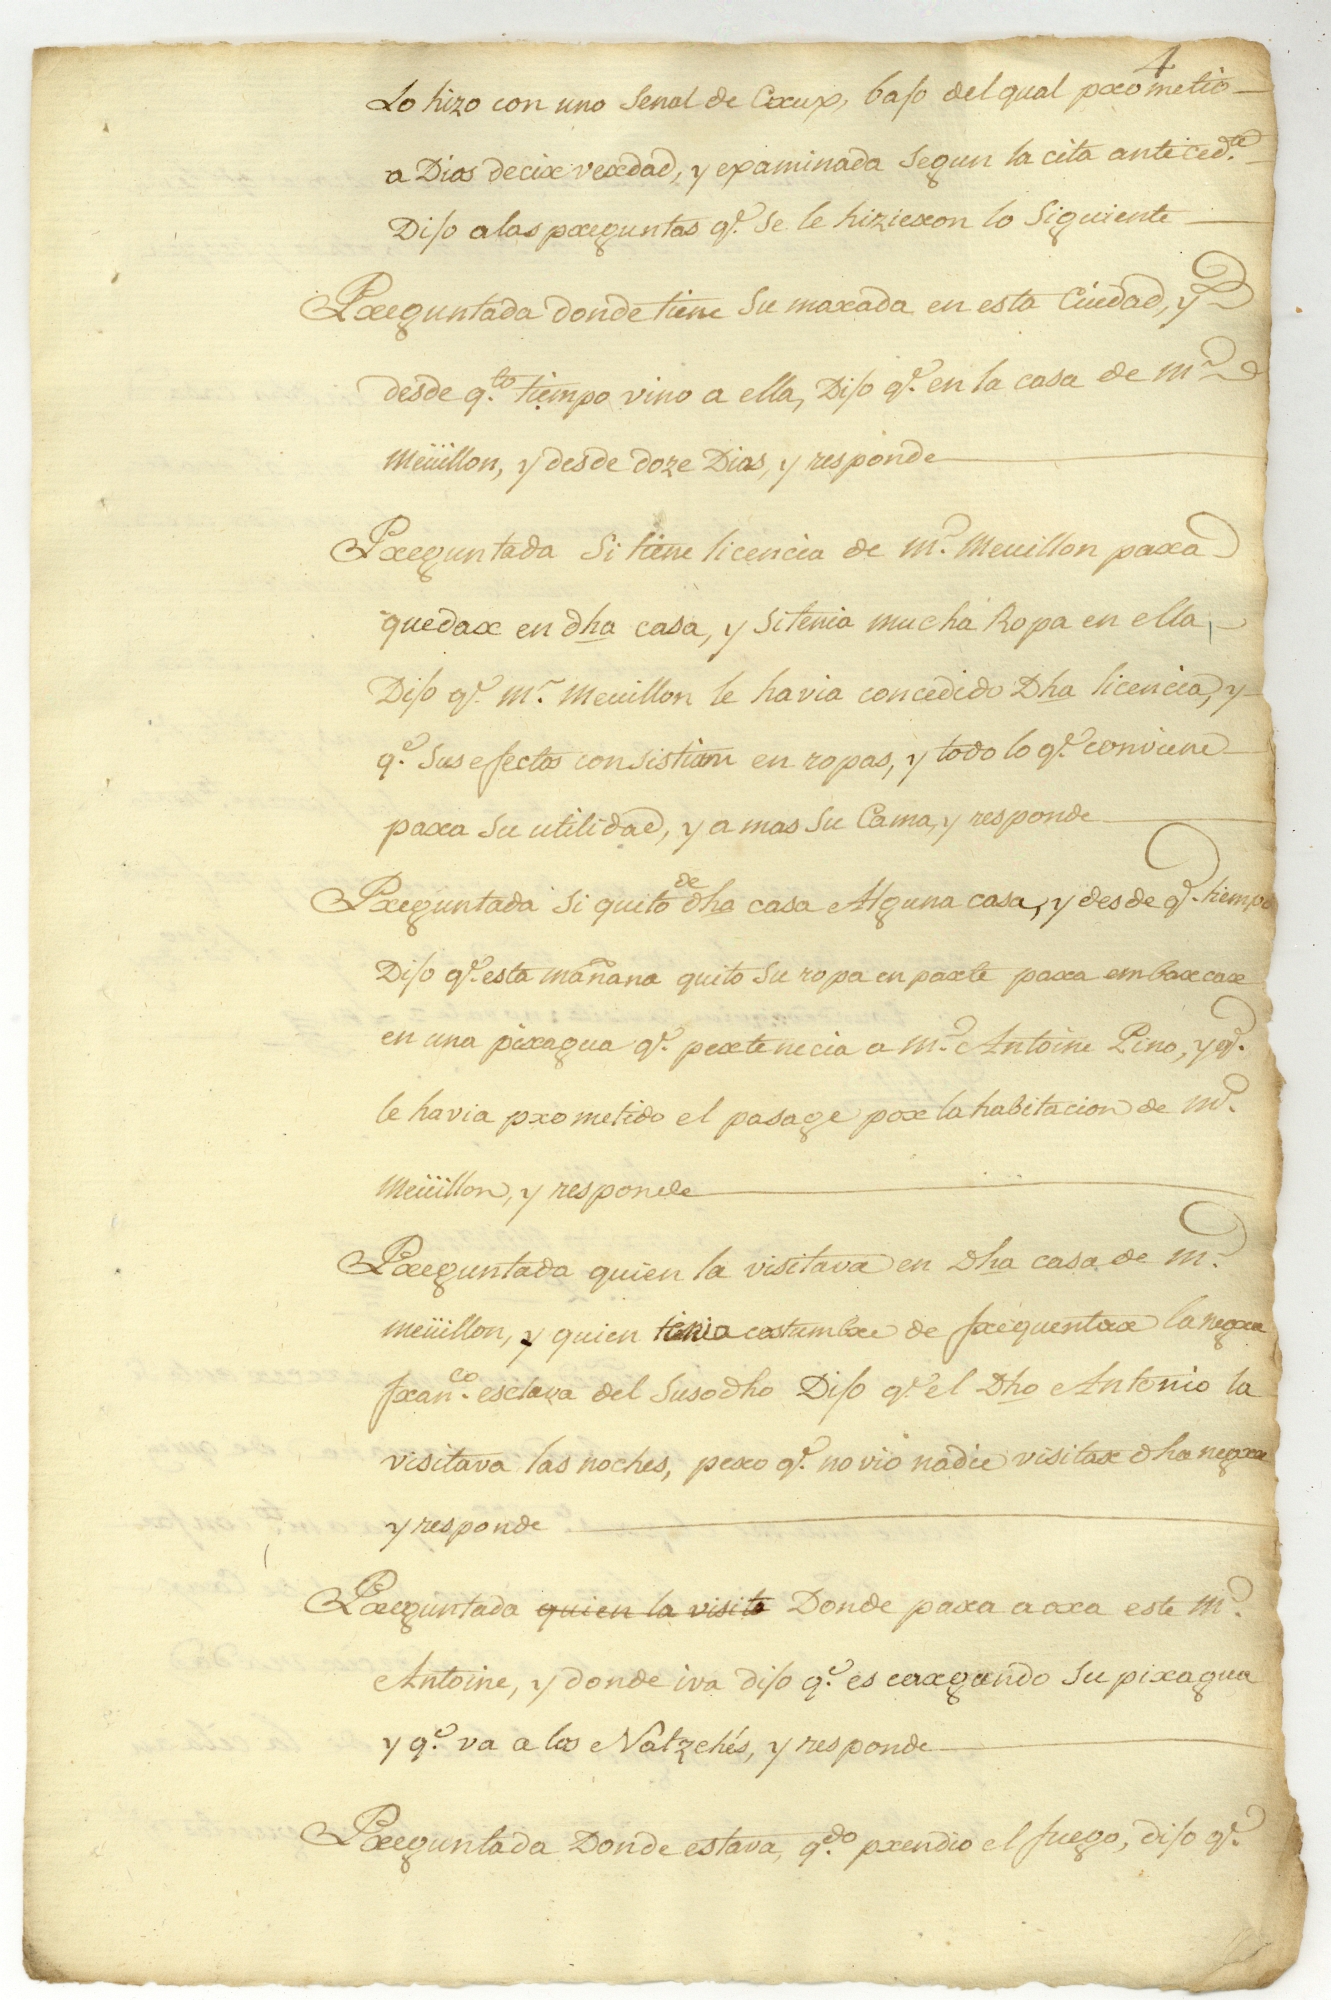 4
Lo hizo con uno Señal de Crux, bajo del qual prometio
a Dios decir verdad, y examinada segun la cita anteced.te
Dijo a las preguntas q.e se le hizieron lo Siguiente
Preguntada donde tiene Su marada en esta Ciudad, y
desde q.to tiempo vino a ella, Dijo q.e en la casa de M.r
Meüillon, y desde doze Dias, y responde
Preguntada Si tiene licencia de M.r Meuillon para
quedar en dha casa, y Si tenia mucha Ropa en ella,
Dijo q.e M.r Meuillon le havia concedido Dha licencia, y
q.e Sus efectos consistian en ropas, y todo lo q.e conviene
para Su utilidad, y a mas Su Cama, y responde
Preguntada Si quito de dha casa Alguna casa, y desde q.e tiempo
Dijo q.e esta mañana quito Su ropa en parte para embarcar
en una piragua q.e pertenecia a M.r Antoine Pino, y q.e
le havia prometido el pasage por la habitacion de M.r
Meüillon, y responde
Preguntada quien la visitava en Dha casa de M.r
Meüillon, y quien tenia costumbre de frequentar la negra
fran.co esclava del Susodho Dijo q.e el Dho Antonio la
visitava las noches, pero q.e no vio nadie visitar dha negra
y responde
Preguntada quien la visito Donde para aora este M.r
Antoine, y donde iva dijo q.e es cargando Su piragua
y q.e va a los Natzchés, y responde
Preguntada Donde estava, q.do prendio el fuego, dijo q.e